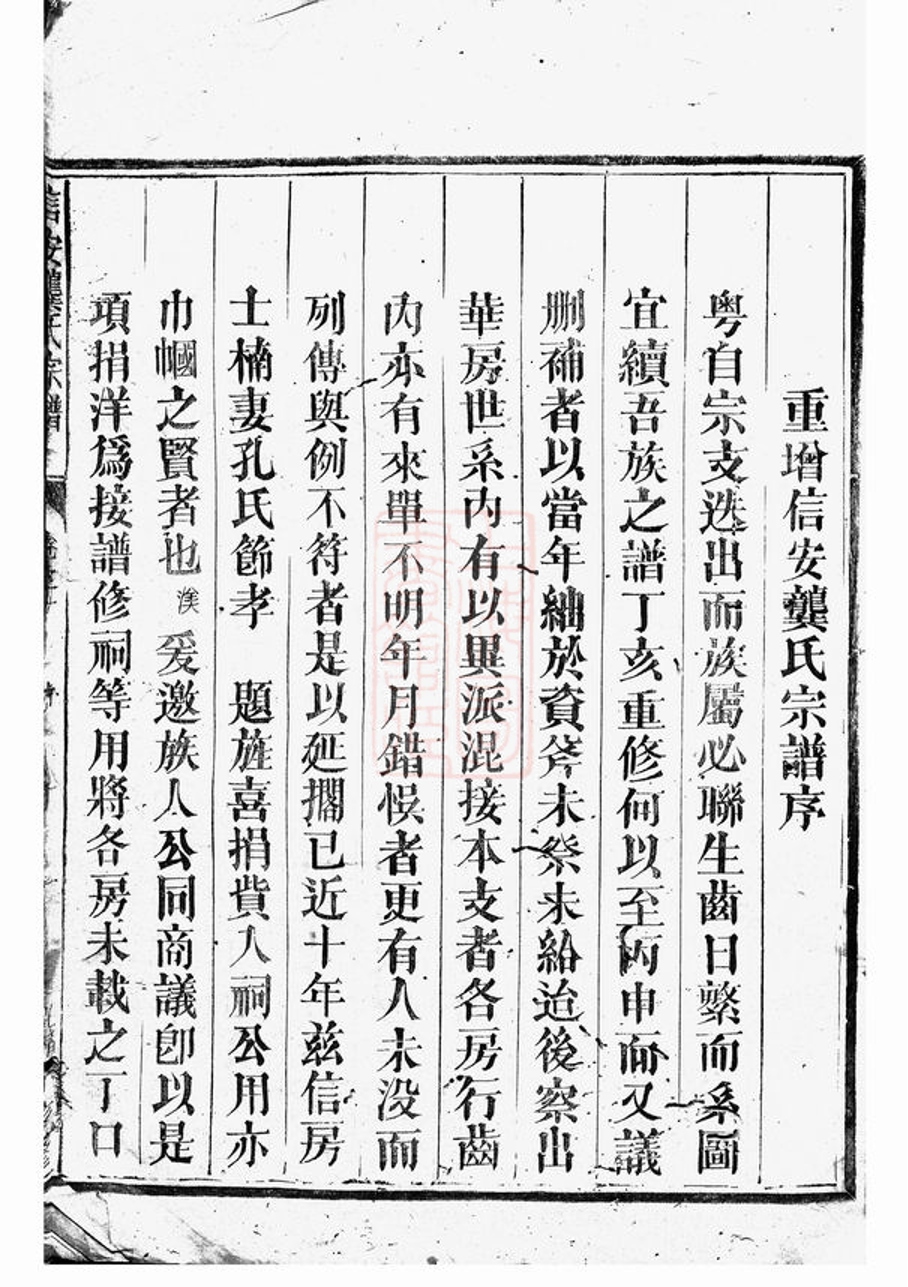 重增信安龔氏宗譜序
粵自宗支迭出而族屬必聯生齒日繁而系圖
宜續吾族之譜丁亥重修何以至丙申而又議
刪補者以當年紬於資斧未祭未紿迨後察出
華房世系內有以異派混接本支者各房行齒
內亦有來單不明年月錯悞者更有人未没而
列傳與例不符者是以延擱已近十年茲信房
士楠妻孔氏節孝 題旌喜捐貲入祠公用亦
巾幗之賢者也渼爰邀族人公同商議卽以是
項捐洋爲接譜修祠等用將各房未載之丁口
信安龔氏宗譜